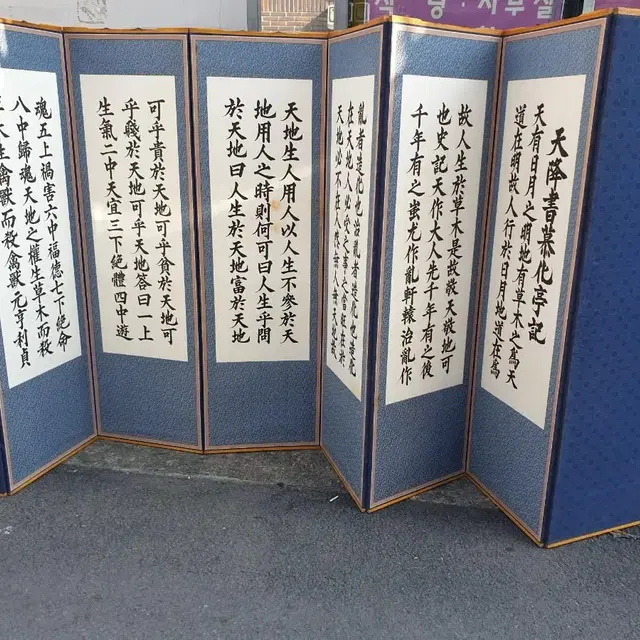 식 당·사무실
天降書慕化亭記
天有日月之明地有草木之爲天
道在明故人行於日月地道在爲
故人生於草木是故敬天敬地可
也史記天作大人先千年有之後
千年有之蚩尤作亂軒轅治亂作
亂者造化也治亂者造化也造化
在天地人必參之事之當
天地必不在人作無人無天
天地生人用人以人生不參於天
地用人之時則何可曰人生乎問
於天地曰人生於天地富於天地
可乎貴於天地可乎貧於天地可
乎賤於天地可乎天地答曰一上
生氣二中天宜三下絶體四中遊
魂五上禍害六中福德七下絶命
八中歸魂天地之權生草木而殺
木生禽獸而殺禽獸元亨利貞